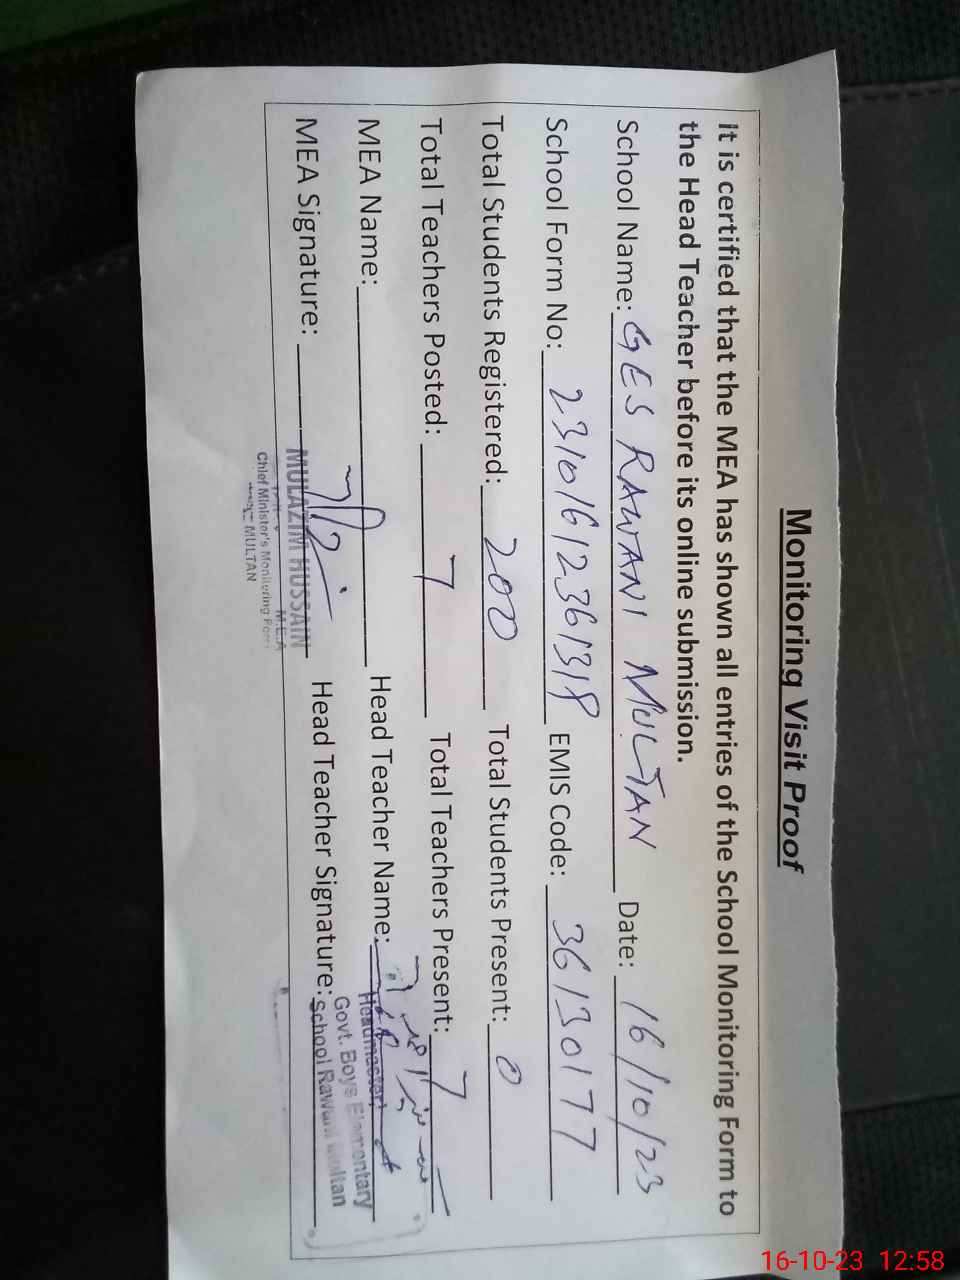 Monitoring Visit Proof
it is certified that the MEA has shown all entries of the School Monitoring Form to
the Head Teacher before its online submission.
School Name: GES RAWANI MULTAN Date: 16/10/23
School Form No: 23101612361318 EMIS Code: 36130177
Total Students Registered: 200 Total Students Present: 0
Total Teachers Posted: 7 Total Teachers Present: 7
MEA Name: Head Teacher Name:
Headmaster
Govt. Boys Elementary
MEA Signature: Head Teacher Signature: School Rawani Multan
MULAZIM HUSSAIN
M.E.A
Chief Minister's Monitoring Force
MULTAN
16-10-23 12:58